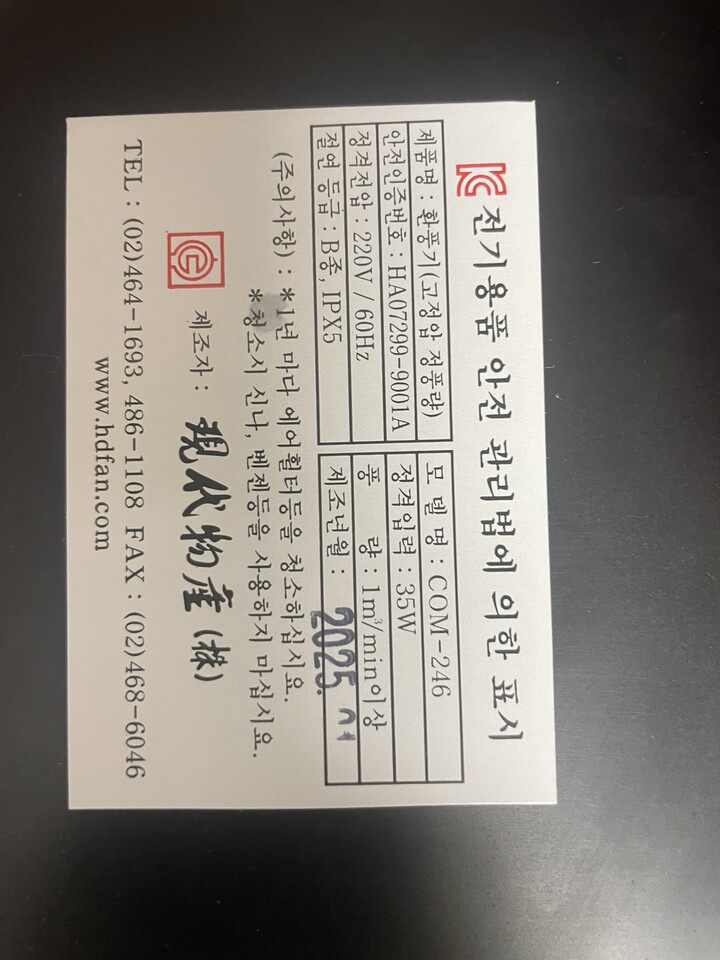 전기용품 안전 관리법에 의한 표시
제품명 : 환풍기(고정압 정풍량)
모 델 명 : COM-246
안전인증번호 : HA07299-9001A
정격입력 : 35W
정격전압 : 220V / 60Hz
풍 량 : 1m³/min이상
절연 등급 : B종, IPX5
제조년월 : 2025.
(주의사항) : *1년 마다 에어휠터등을 청소하십시요.
*청소시 신나, 벤젠등을 사용하지 마십시요.
제조자 : 現代物産 (株)
TEL : (02)464-1693, 486-1108 FAX : (02)468-6046
www.hdfan.com